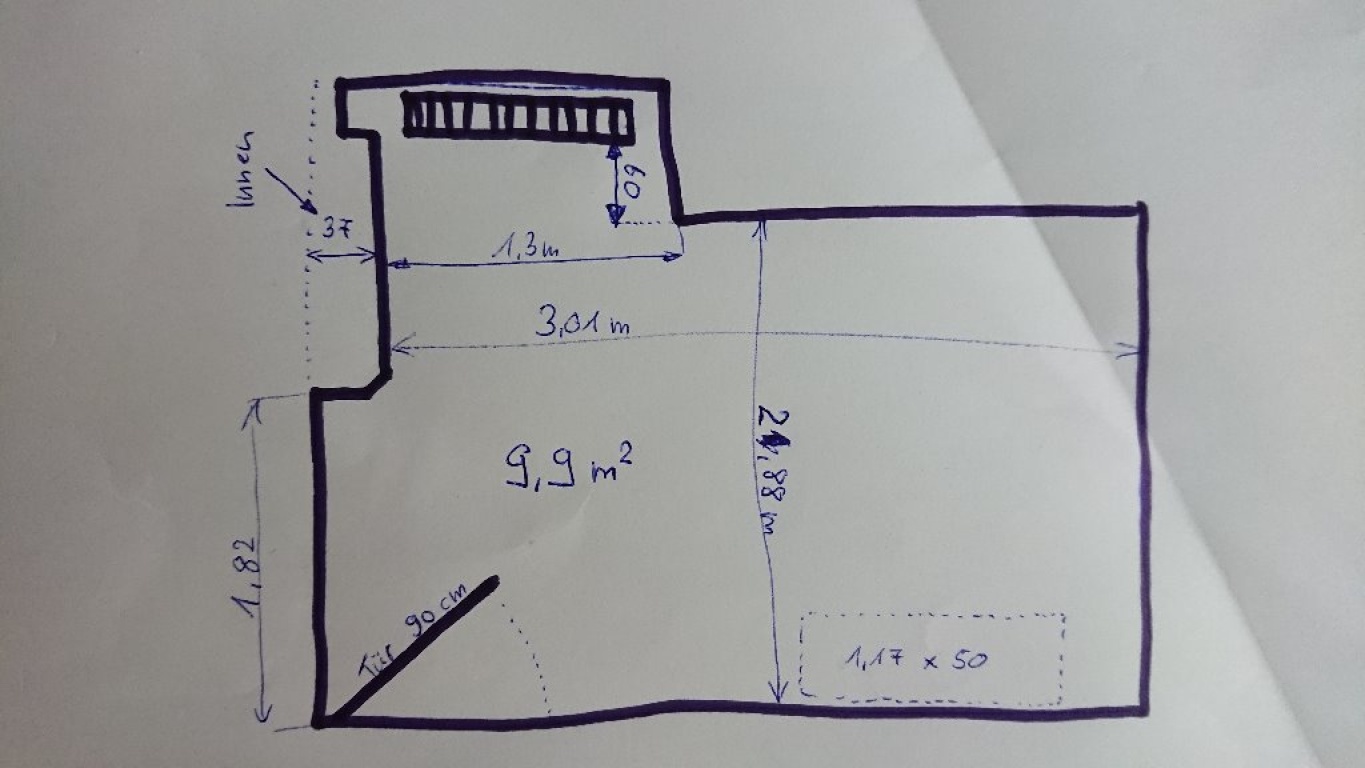 Innen
37
60
1,3m
3,01 m
9,9 m²
1,82
Tür 90 cm
1,17 x 50